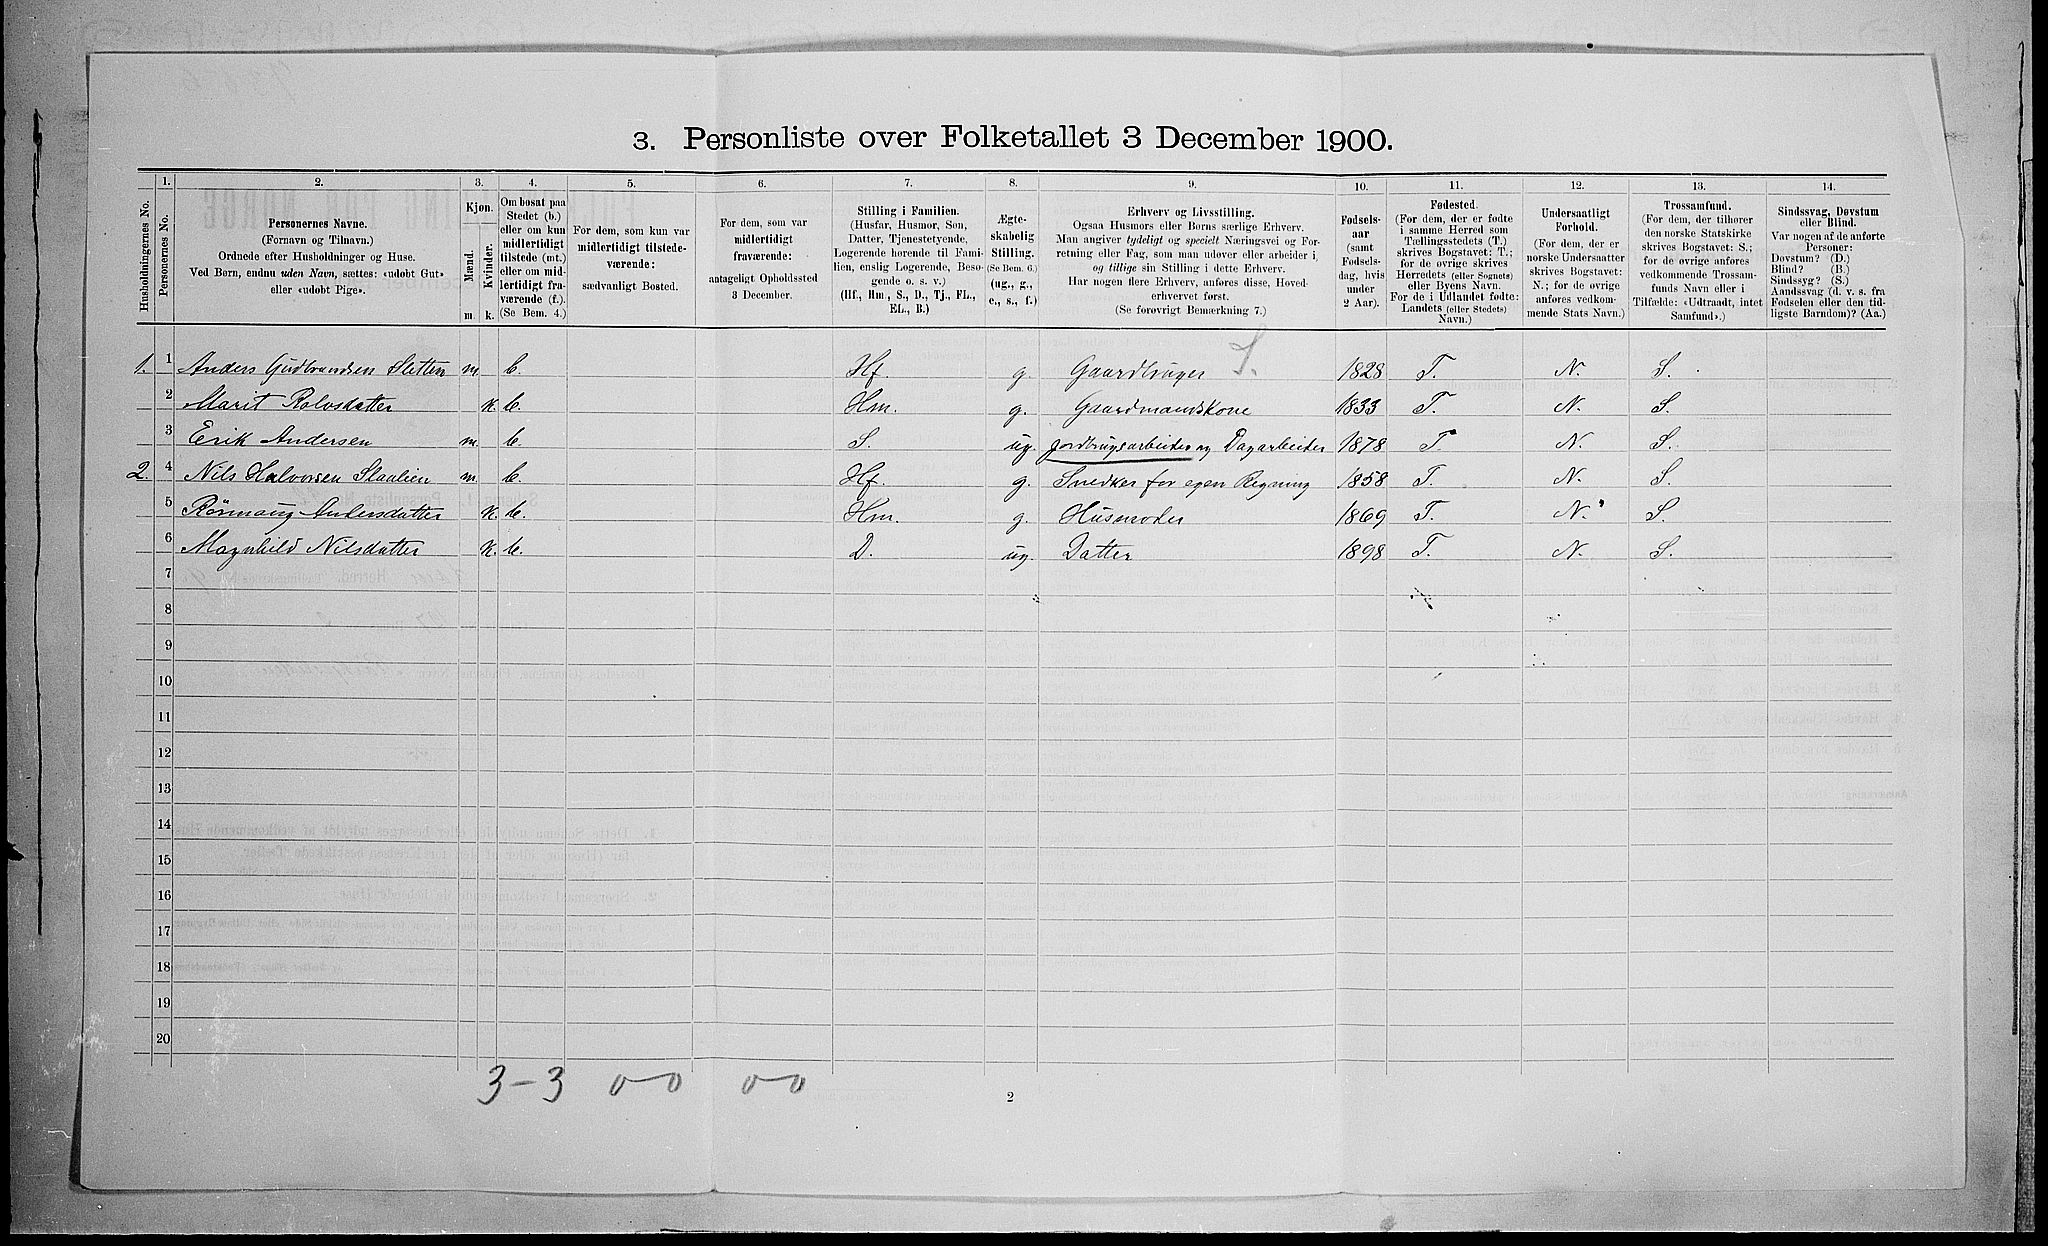 3. Personliste over Folketallet 3 December 1900.
1. 2. 3. 4. 5. 6. 7. 8. 9. 10. 11. 12. 13. 14.
Husholdningernes No.
Personernes No.
Personernes Navne.
(Fornavn og Tilnavn.)
Ordnede efter Husholdninger og Huse.
Ved Børn, endnu uden Navn, sættes: «udøbt Gut»
eller «udøbt Pige».
Kjøn.
Mænd.
Kvinder.
m. k.
Om bosat paa
Stedet (b.)
eller om kun
midlertidigt
tilstede (mt.)
eller om mid-
lertidigt fra-
værende (f.).
(Se Bem. 4.)
For dem, som kun var
midlertidigt tilstede-
værende:
sædvanligt Bosted.
For dem, som var
midlertidigt
fraværende:
antageligt Opholdssted
3 December.
Stilling i Familien.
(Husfar, Husmor, Søn,
Datter, Tjenestetyende,
Logerende hørende til Fami-
lien, enslig Logerende, Besø-
gende o. s. v.)
(Hf., Hm., S., D., Tj., FL.,
EL., B.)
Ægte-
skabelig
Stilling.
(Se Bem. 6.)
(ug., g.,
e., s., f.)
Erhverv og Livsstilling.
Ogsaa Husmors eller Børns særlige Erhverv.
Man angiver tydeligt og specielt Næringsvei og For-
retning eller Fag, som man udøver eller arbeider i,
og tillige sin Stilling i dette Erhverv.
Har nogen flere Erhverv, anføres disse, Hoved-
erhvervet først.
(Se forøvrigt Bemærkning 7.)
Fødsels-
aar
(samt
Fødsels-
dag, hvis
under
2 Aar).
Fødested.
(For dem, der er fødte
i samme Herred som
Tællingsstedets (T.)
skrives Bogstavet: T.;
for de øvrige skrives
Herredets (eller Sognets)
eller Byens Navn.
For de i Udlandet fødte:
Landets (eller Stedets)
Navn.)
Undersaatligt
Forhold.
(For dem, der er
norske Undersaatter
skrives Bogstavet:
N.; for de øvrige
anføres vedkom-
mende Stats Navn.)
Trossamfund.
(For dem, der tilhører
den norske Statskirke
skrives Bogstavet: S.;
for de øvrige anføres
vedkommende Trossam-
funds Navn eller i
Tilfælde: «Udtraadt, intet
Samfund».)
Sindssvag, Døvstum
eller Blind.
Var nogen af de anførte
Personer:
Døvstum? (D.)
Blind? (B.)
Sindssyg? (S.)
Aandssvag (d. v. s. fra
Fødselen eller den tid-
ligste Barndom)? (Aa.)
S.
1. 1 Anders Gudbrandsen Sletten m. b. Hf. g. Gaardbruger 1828 T. N. S.
2 Marit Rolvsdatter k. b. Hm. g. Gaardmandskone 1833 T. N. S.
3 Erik Andersen m. b. S. ug. Jordbrugsarbeider og Dagarbeider 1878 T. N. S.
2. 4 Nils Halvorsen Slaalien m. b. Hf. g. Snedker for egen Regning 1858 T. N. S.
5 Andersdatter k. b. Hm. g. Husmoder 1869 T. N. S.
6 Magnhild Nilsdatter k. b. D. ug. Datter 1898 T. N. S.
7
8
9
10
11
12
13
14
15
16
17
18
19
20
3-3 0-0 0-0
2